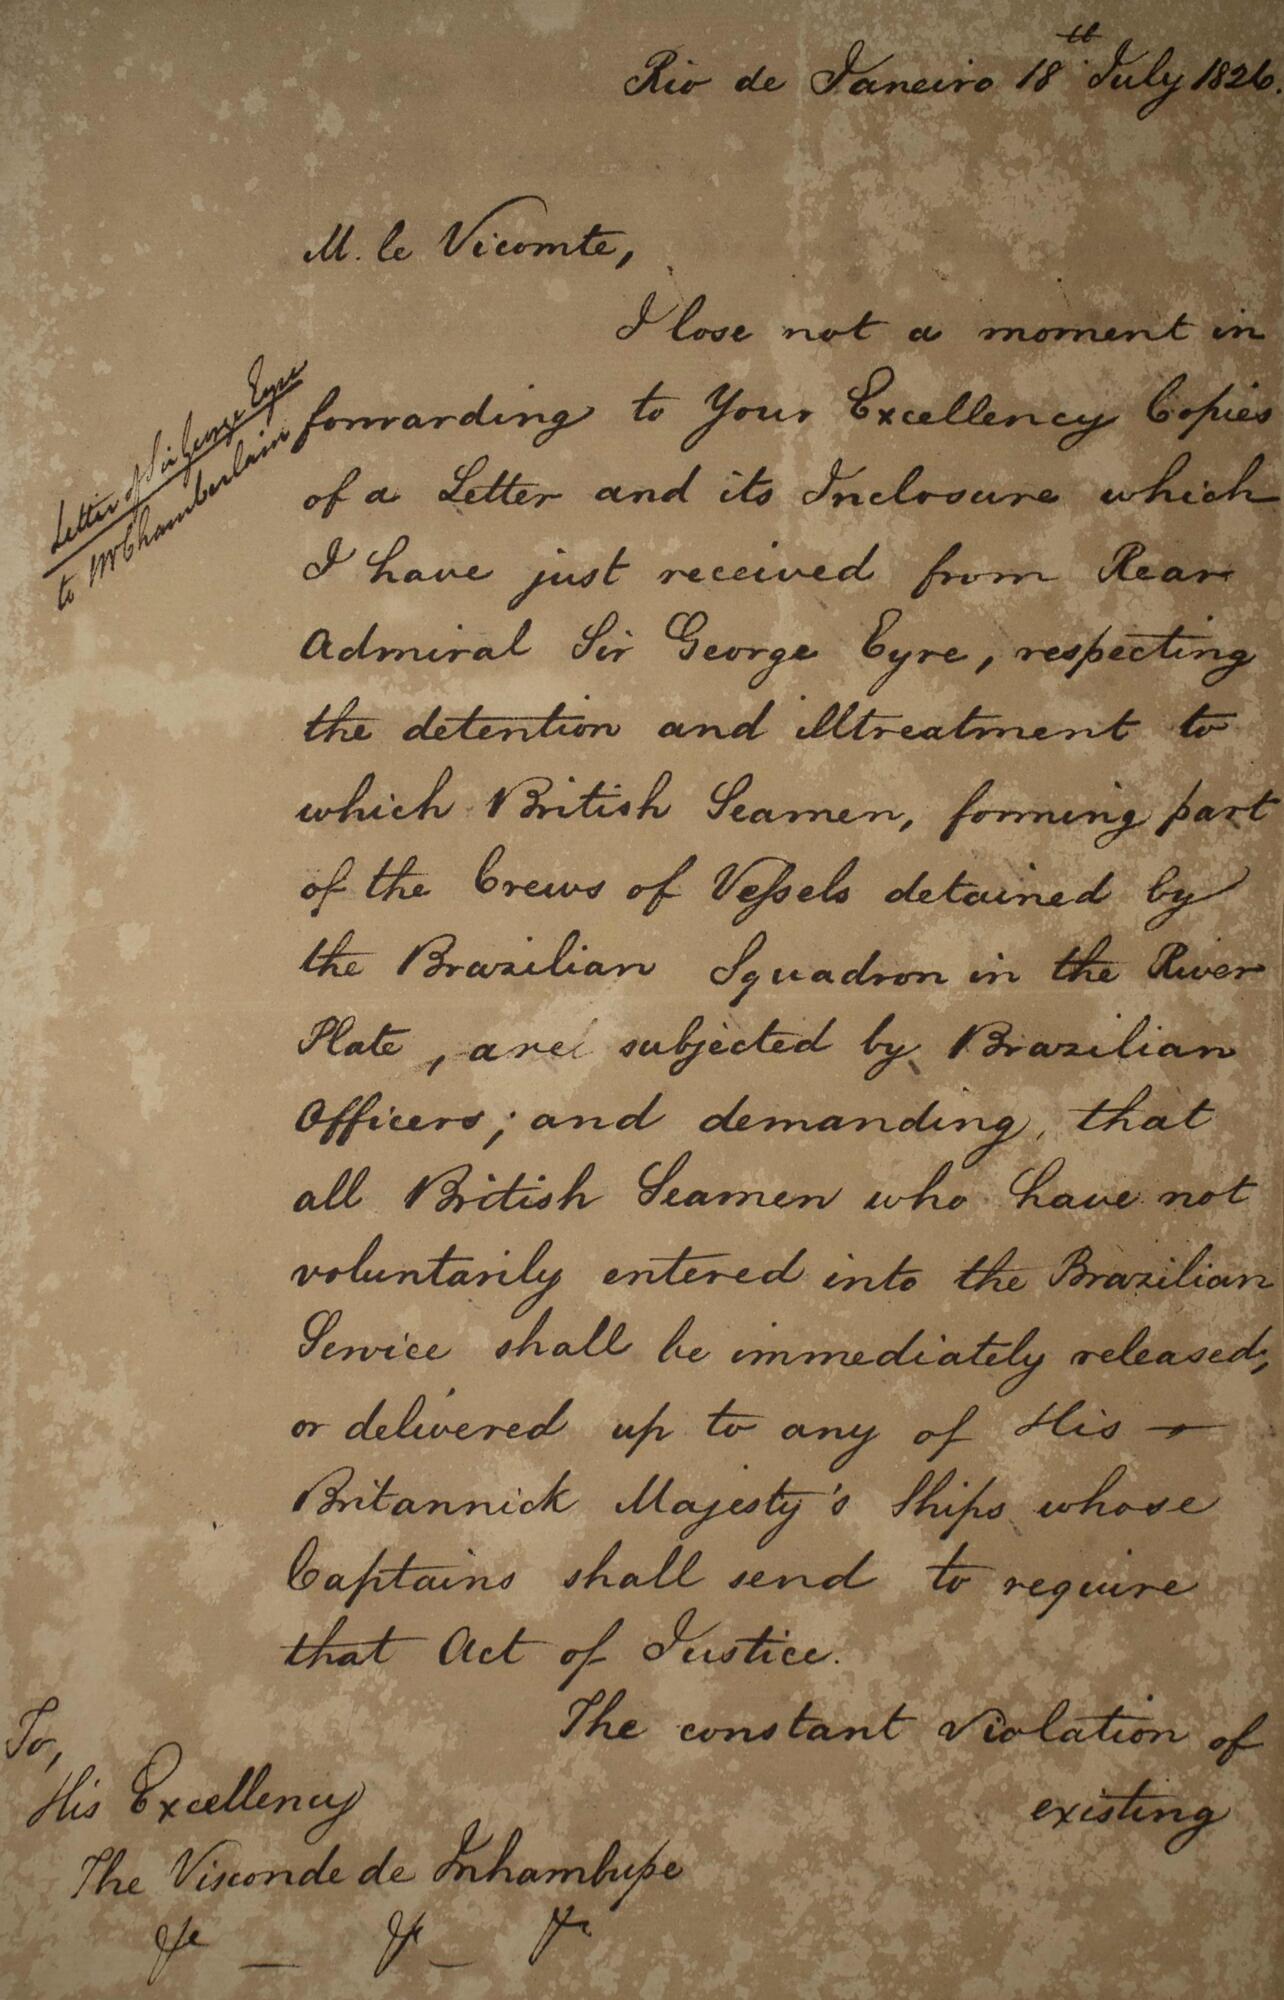 Rio de Janeiro 18th July 1826.
M. le Vicomte,
I lose not a moment in
forwarding to Your Excellency Copies
of a Letter and its Inclosure which
I have just received from Rear
Admiral Sir George Eyre, respecting
the detention and illtreatment to
which British Seamen, forming part
of the Crews of Vessels detained by
the Brazilian Squadron in the River
Plate, are subjected by Brazilian
Officers; and demanding, that
all British Seamen who have not
voluntarily entered into the Brazilian
Service shall be immediately released,
or delivered up to any of His —
Britannick Majesty's Ships whose
Captains shall send to require
that Act of Justice.
The constant Violation of
existing
Letter of Sir George Eyre
to Mr Chamberlain
To,
His Excellency
The Visconde de Inhambupe
&c — &c — &c